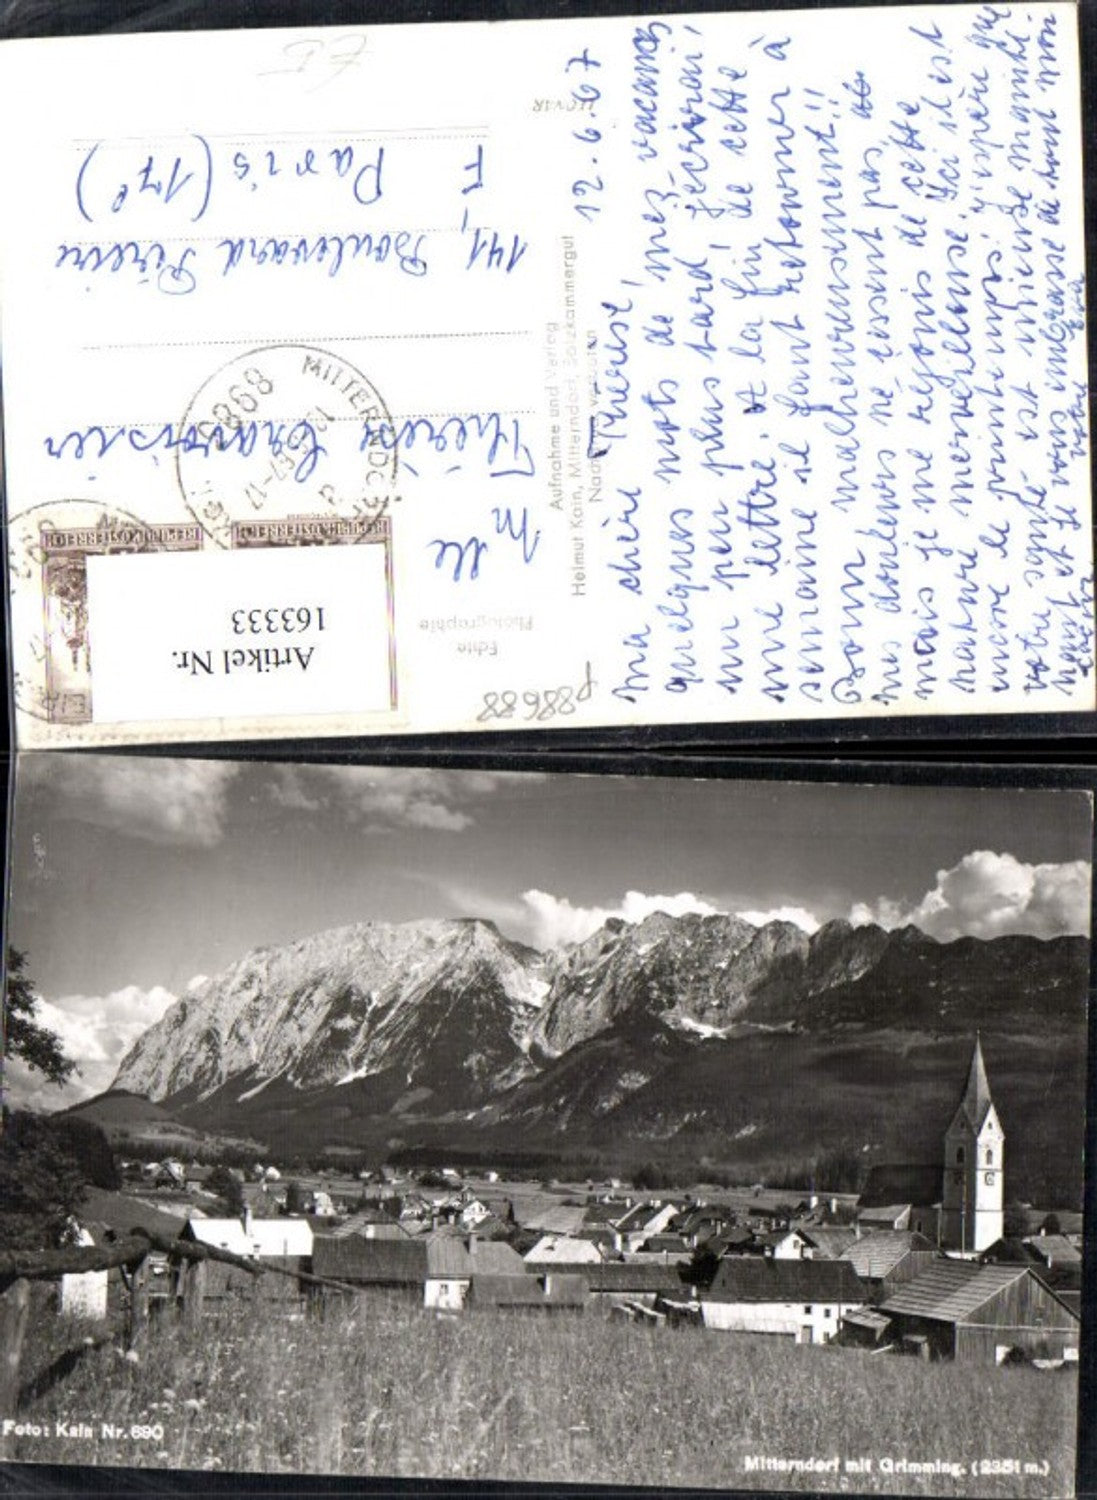 12. 6. 67
Ma chère Thérèse,
quelques mots de mes vacances
un peu plus tard, j'écrirai
une lettre. A la fin de cette
semaine il faut retourner à
Bonn malheureusement!!
mes douleurs ne cessent pas,
mais je me réjouis de cette
nature merveilleuse. Ici il est
encore le printemps. J'espère que
votre santé est mieux
et je vous embrasse de tout mon
votre Eva
Aufnahme und Verlag
Helmut Kain, Mitterndorf, Salzkammergut
Echte
Photographie
P88688
Mlle
Thérèse
141, Boulevard Péreire
F Paris (17e)
8983
MITTERNDORF
REPUBLIK ÖSTERREICH
REPUBLIK ÖSTERREICH
Artikel Nr.
163333
Foto: Kain Nr. 690
Mitterndorf mit Grimming. (2351 m.)